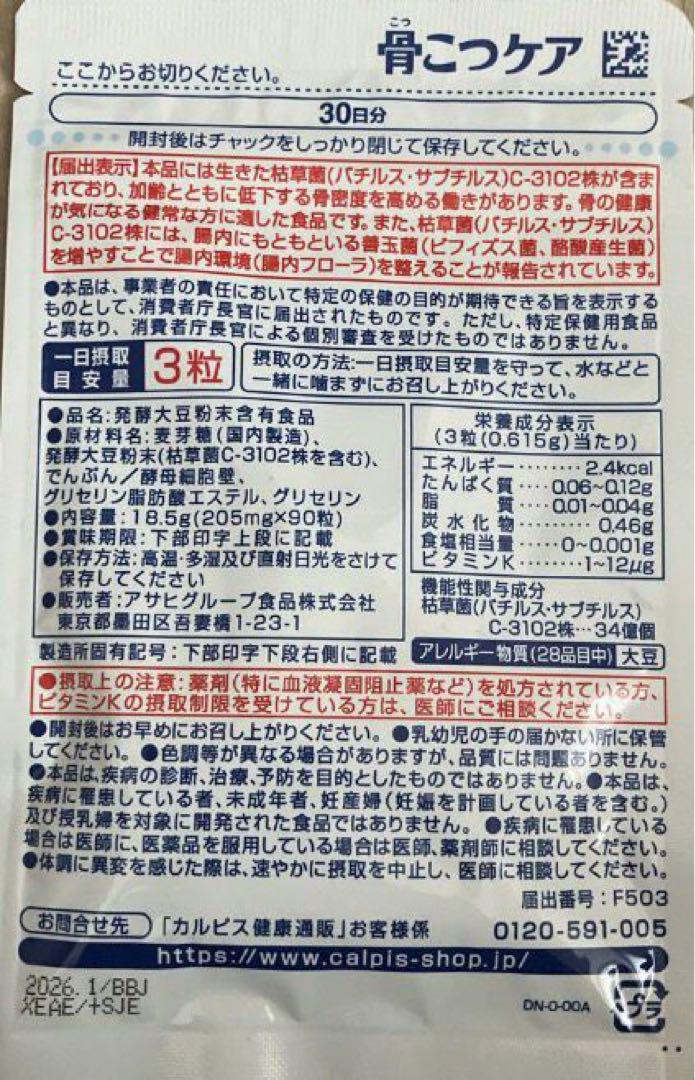 こつ
骨こつケア
ここからお切りください。
30日分
開封後はチャックをしっかり閉じて保存してください。
【届出表示】本品には生きた枯草菌(バチルス・サブチルス)C-3102株が含ま
れており、加齢とともに低下する骨密度を高める働きがあります。骨の健康
が気になる健常な方に適した食品です。また、枯草菌(バチルス・サブチルス)
C-3102株には、腸内にもともといる善玉菌(ビフィズス菌、酪酸産生菌)
を増やすことで腸内環境(腸内フローラ)を整えることが報告されています。
●本品は、事業者の責任において特定の保健の目的が期待できる旨を表示する
ものとして、消費者庁長官に届出されたものです。ただし、特定保健用食品
と異なり、消費者庁長官による個別審査を受けたものではありません。
一日摂取
目安量
3粒
摂取の方法:一日摂取目安量を守って、水などと
一緒に噛まずにお召し上がりください。
●品名:発酵大豆粉末含有食品
●原材料名:麦芽糖(国内製造)、
発酵大豆粉末(枯草菌C-3102株を含む)、
でんぷん/酵母細胞壁、
グリセリン脂肪酸エステル、グリセリン
●内容量:18.5g(205mg×90粒)
●賞味期限:下部印字上段に記載
●保存方法:高温・多湿及び直射日光をさけて
保存してください
●販売者:アサヒグループ食品株式会社
東京都墨田区吾妻橋1-23-1
栄養成分表示
(3粒(0.615g)当たり)
エネルギー········2.4kcal
たんぱく質····0.06~0.12g
脂質····0.01~0.04g
炭水化物·········0.46g
食塩相当量·····0~0.001g
ビタミンK········1~12μg
機能性関与成分
枯草菌(バチルス・サブチルス)
C-3102株…34億個
製造所固有記号:下部印字下段右側に記載
アレルギー物質(28品目中) 大豆
●摂取上の注意:薬剤(特に血液凝固阻止薬など)を処方されている方、
ビタミンKの摂取制限を受けている方は、医師にご相談ください。
●開封後はお早めにお召し上がりください。●乳幼児の手の届かない所に保管
してください。●色調等が異なる場合がありますが、品質には問題ありません。
●本品は、疾病の診断、治療、予防を目的としたものではありません。●本品は、
疾病に罹患している者、未成年者、妊産婦(妊娠を計画している者を含む。)
及び授乳婦を対象に開発された食品ではありません。●疾病に罹患している
場合は医師に、医薬品を服用している場合は医師、薬剤師に相談してください。
●体調に異変を感じた際は、速やかに摂取を中止し、医師に相談してください。
届出番号:F503
お問合せ先
「カルピス健康通販」お客様係
0120-591-005
https://www.calpis-shop.jp/
2026.1/BBJ
XEAE/+SJE
DN-0-00A
プラ